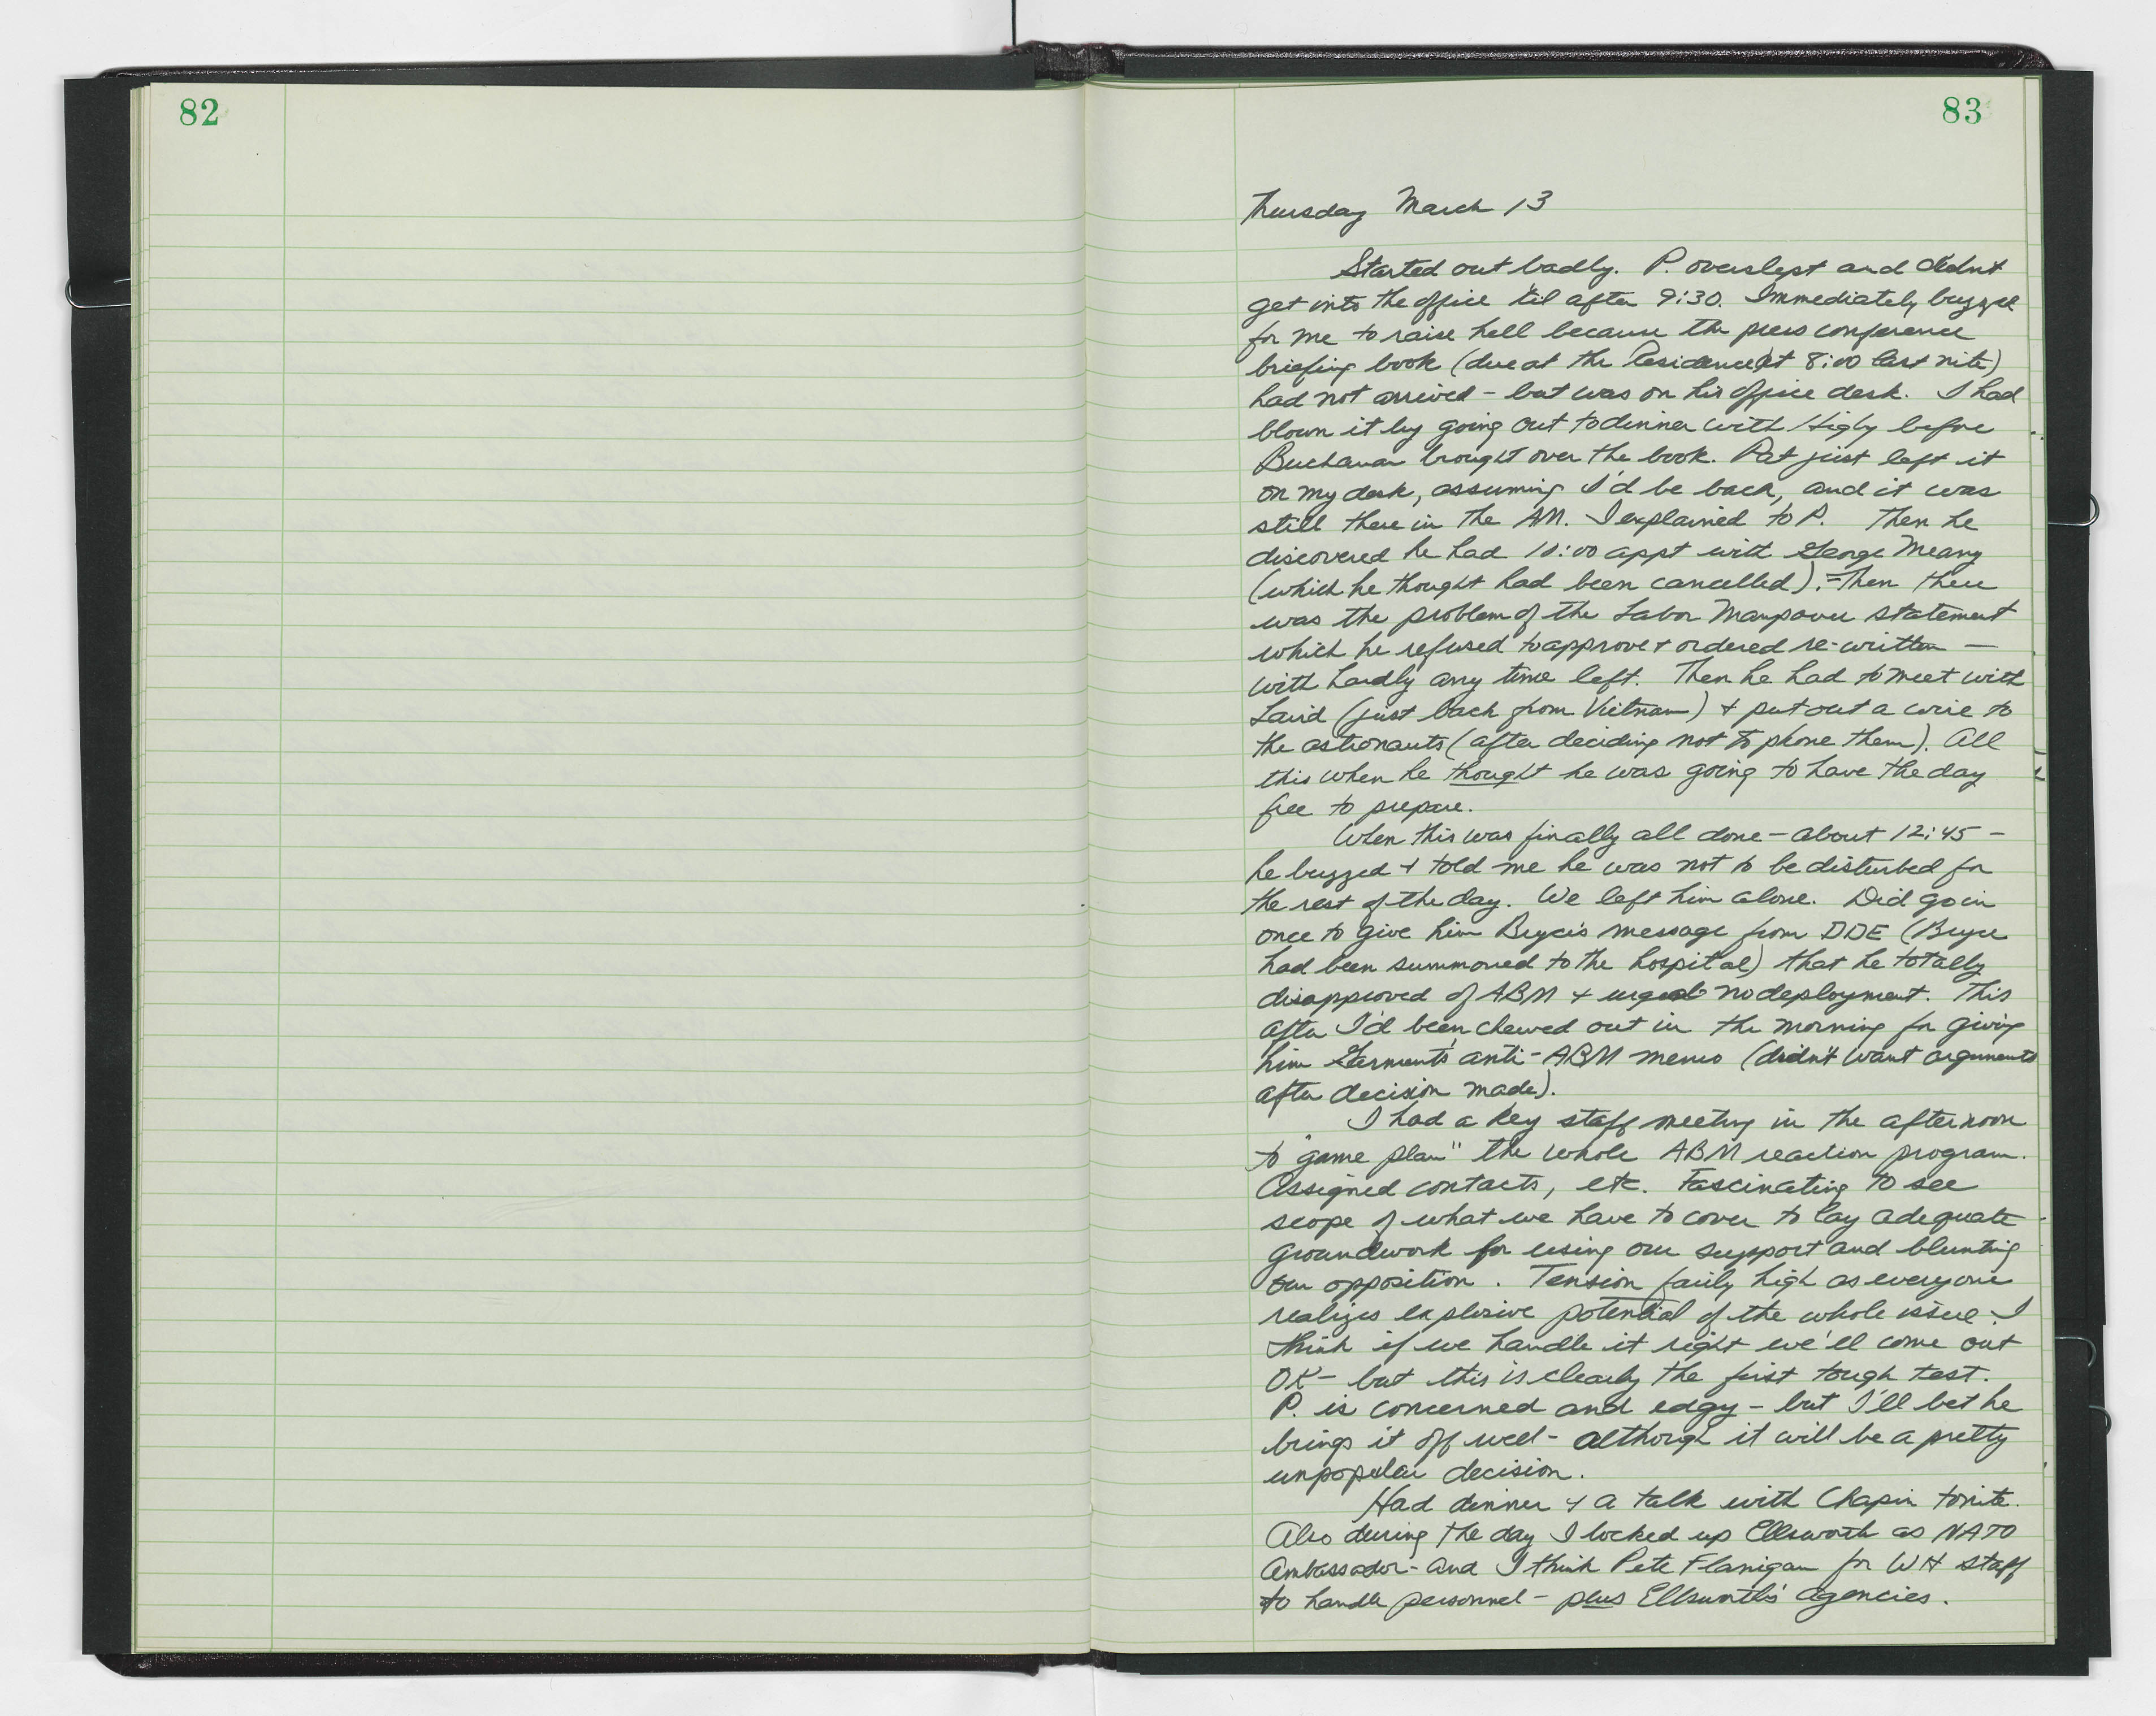 82
83
Thursday March 13
Started out badly. P. overslept and didn't
get into the office 'til after 9:30. Immediately buzzed
for me to raise hell because the press conference
briefing book (due at the Residence at 8:00 last nite)
had not arrived - but was on his office desk. I had
blown it by going out to dinner with Higby before
Buchanan brought over the book. Pat just left it
on my desk, assuming I'd be back, and it was
still there in the AM. I explained to P. Then he
discovered he had 10:00 appt with George Meany
(which he thought had been cancelled). Then there
was the problem of the Labor Manpower statement
which he refused to approve & ordered re-written —
with hardly any time left. Then he had to meet with
Laird (just back from Vietnam) & put out a wire to
the astronauts (after deciding not to phone them). All
this when he thought he was going to have the day
free to prepare.
When this was finally all done - about 12:45 -
he buzzed & told me he was not to be disturbed for
the rest of the day. We left him alone. Did go in
once to give him Bryce's message from DDE (Bryce
had been summoned to the hospital) that he totally
disapproved of ABM & urged no deployment. This
after I'd been chewed out in the morning for giving
him Garment's anti-ABM memo (didn't want arguments
after decision made).
I had a key staff meeting in the afternoon
to "game plan" the whole ABM reaction program.
Assigned contacts, etc. Fascinating to see
scope of what we have to cover to lay adequate
groundwork for using our support and blunting
our opposition. Tension fairly high as everyone
realizes explosive potential of the whole issue. I
think if we handle it right we'll come out
OK - but this is clearly the first tough test.
P. is concerned and edgy - but I'll bet he
brings it off well - although it will be a pretty
unpopular decision.
Had dinner & a talk with Chapin tonite.
Also during the day I locked up Ellsworth as NATO
Ambassador - and I think Pete Flanigan for WH staff
to handle personnel - plus Ellsworth's agencies.